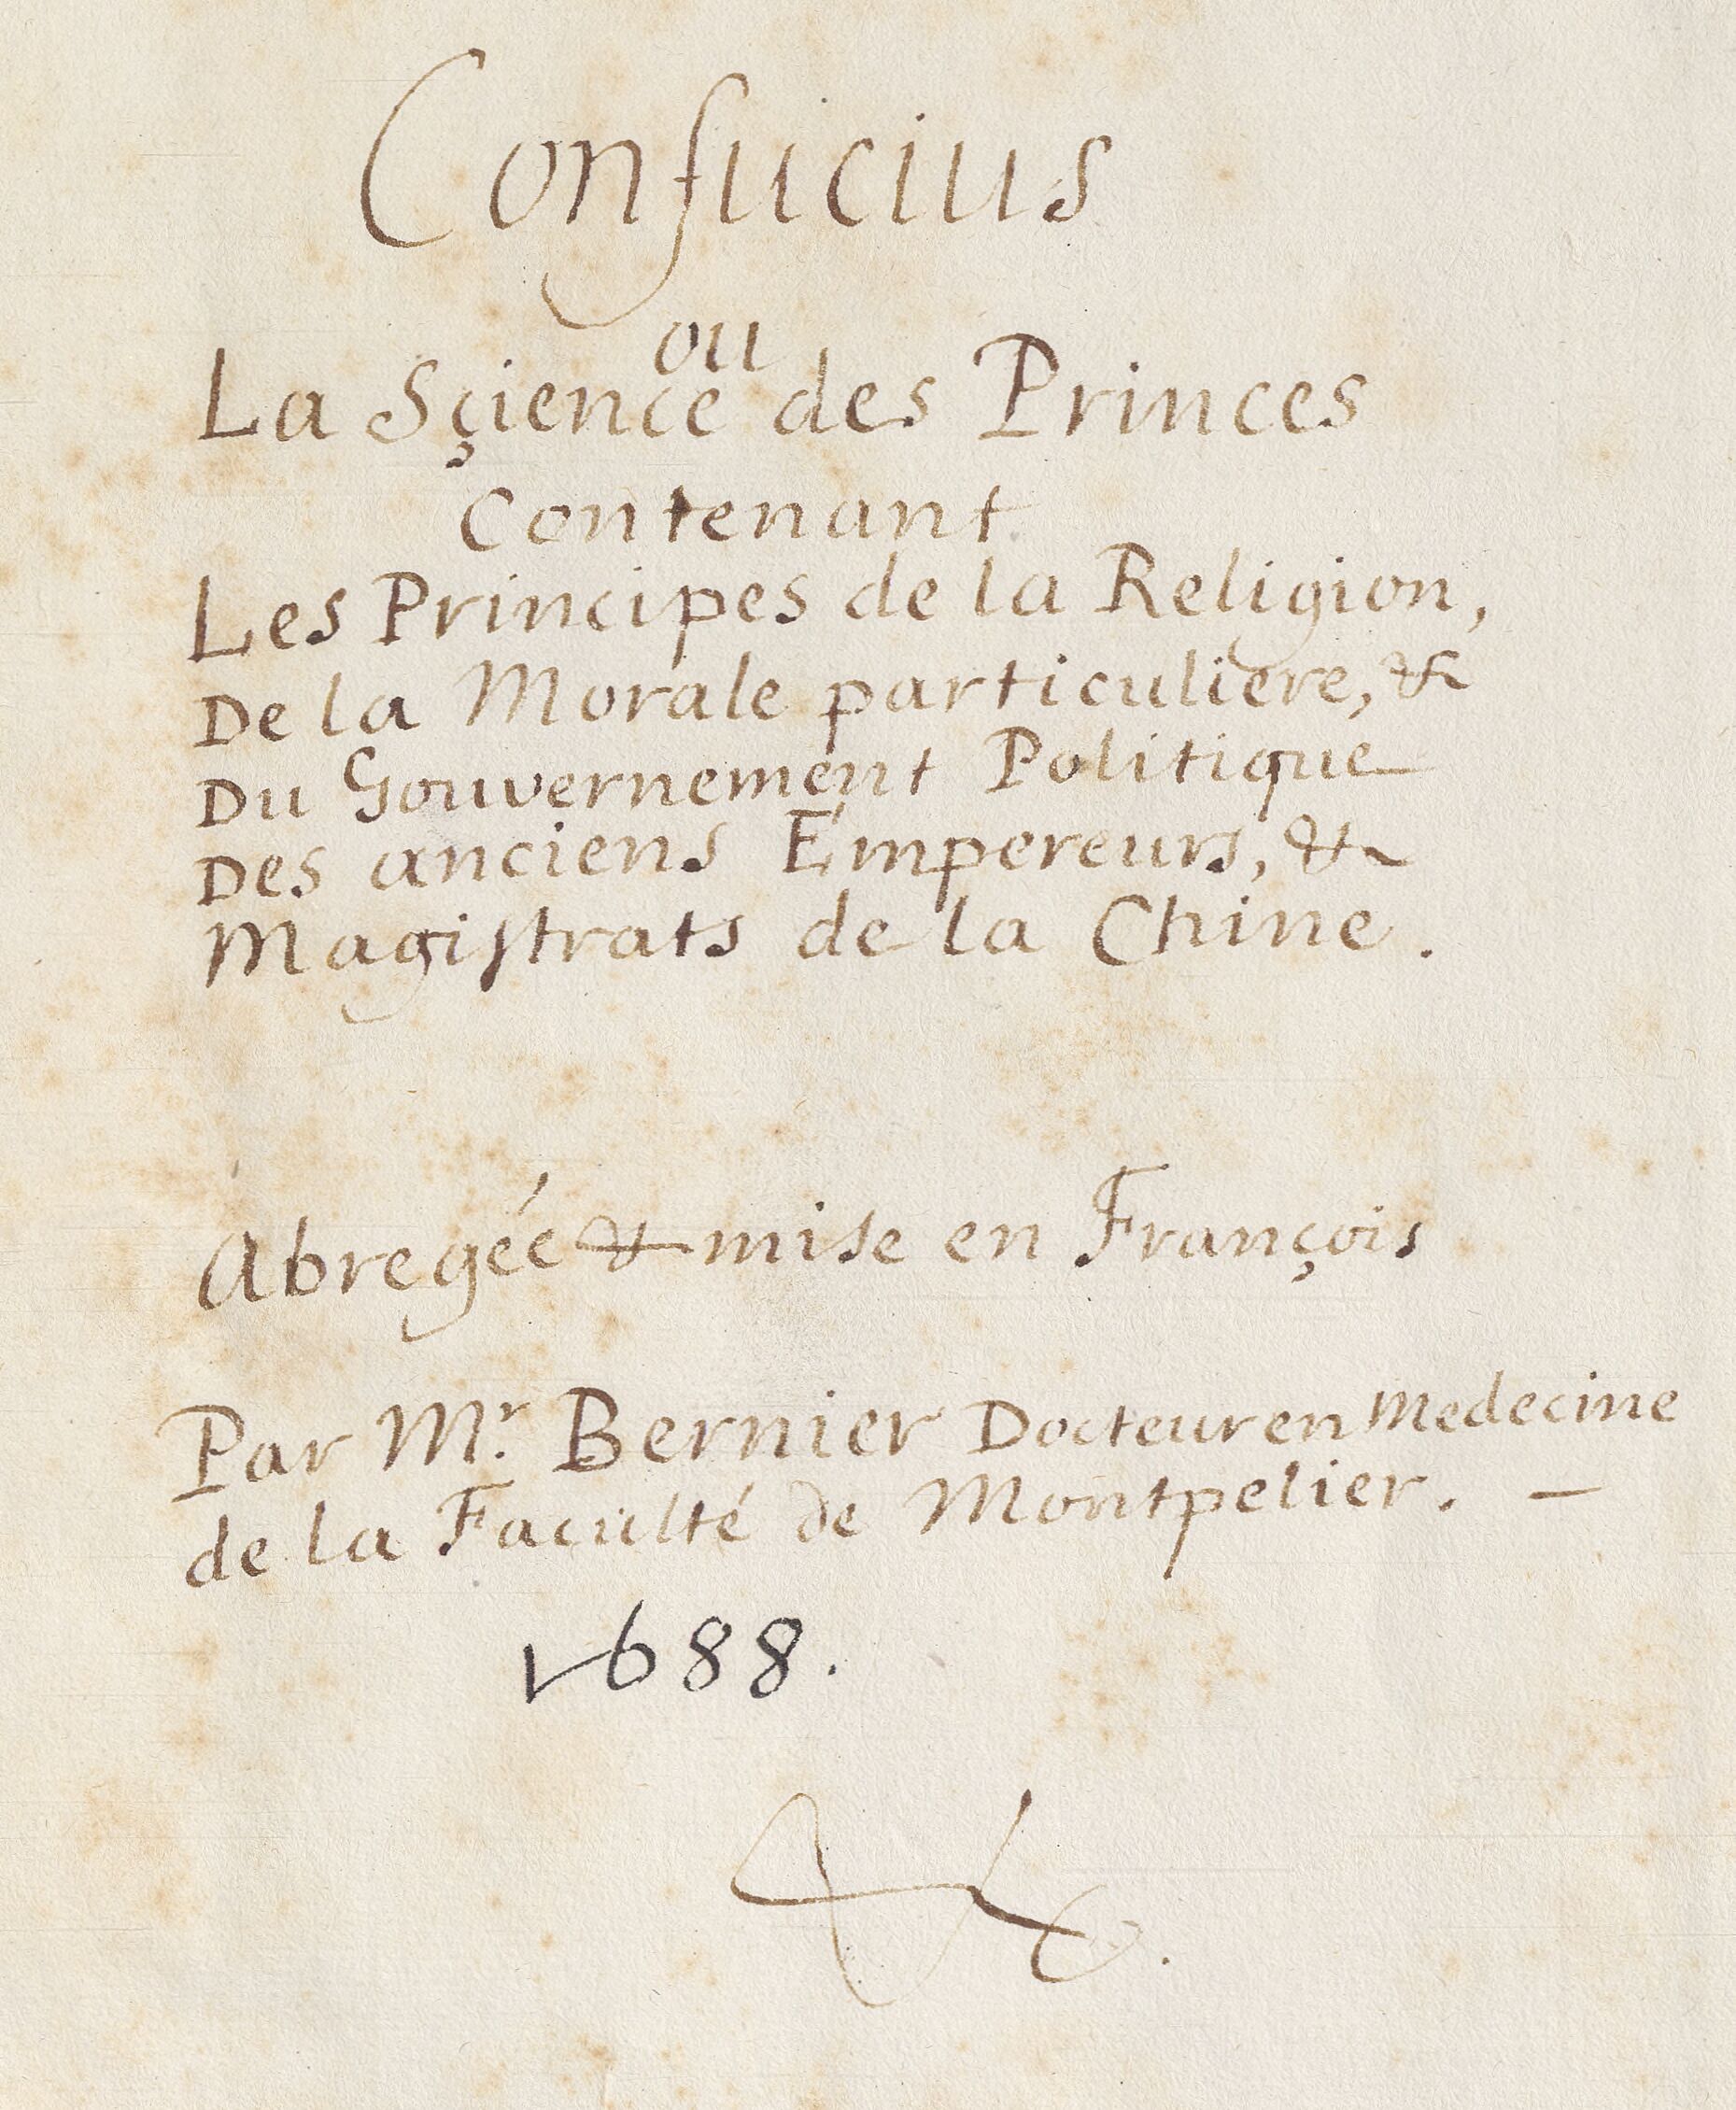 Confucius
ou
La Sçience des Princes
Contenant
Les Principes de la Religion,
De la Morale particuliere, &
Du Gouvernement Politique
Des anciens Empereurs, &
Magiſtrats de la Chine.
Abregée & mise en François
Par Mr. Bernier Docteur en Medecine
de la Faculté de Montpelier. —
1688.